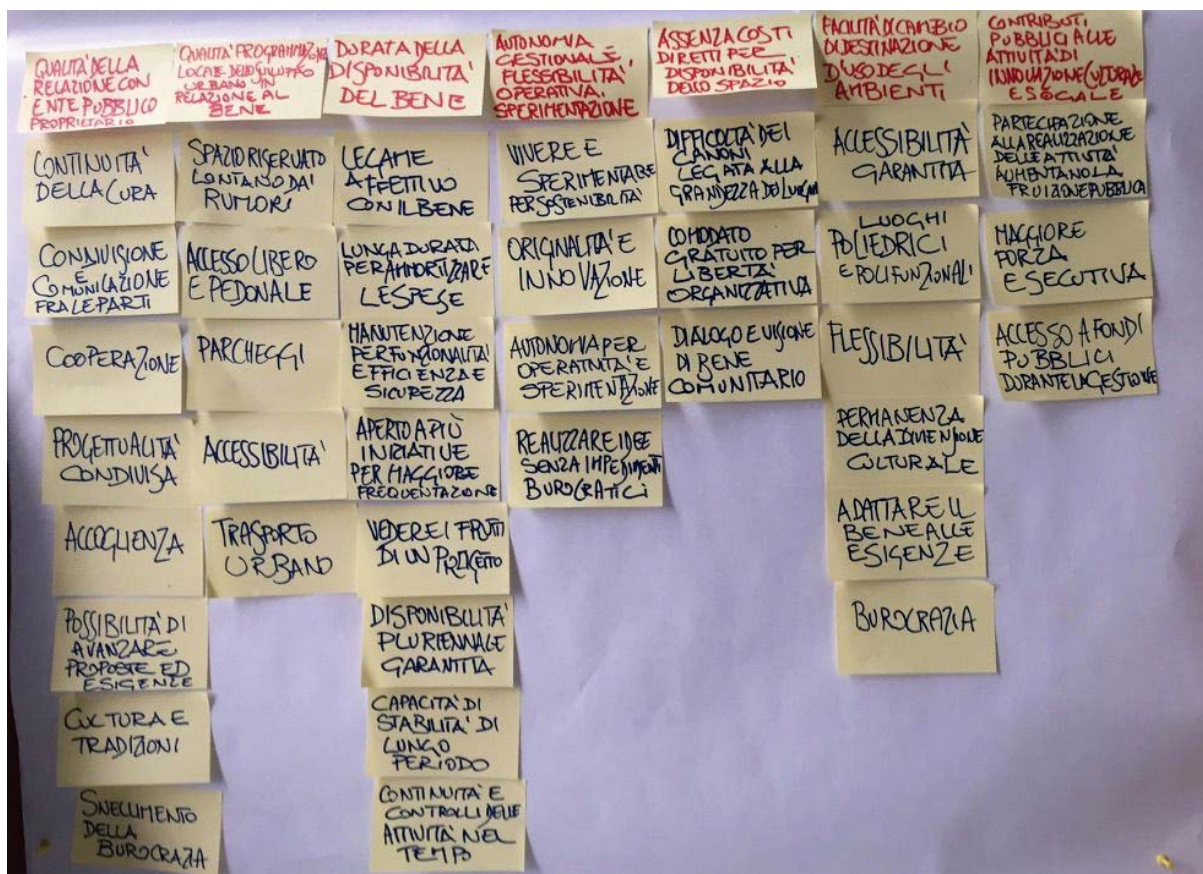 QUALITÀ DELLA
RELAZIONE CON
ENTE PUBBLICO
PROPRIETARIO
CONTINUITÀ
DELLA CURA
CONDIVISIONE
E
COMUNICAZIONE
FRA LE PARTI
COOPERAZIONE
PROGETTUALITÀ
CONDIVISA
ACCOGLIENZA
POSSIBILITÀ DI
AVANZARE
PROPOSTE ED
ESIGENZE
CULTURA E
TRADIZIONI
SNELLIMENTO
DELLA
BUROCRAZIA
QUALITÀ PROGRAMMAZIONE
LOCALE DELLO SVILUPPO
URBANO IN
RELAZIONE AL
BENE
SPAZIO RISERVATO
LONTANO DAI
RUMORI
ACCESSO LIBERO
E PEDONALE
PARCHEGGI
ACCESSIBILITÀ
TRASPORTO
URBANO
DURATA DELLA
DISPONIBILITÀ
DEL BENE
LEGAME
AFFETTIVO
CON IL BENE
LUNGA DURATA
PER AMMORTIZZARE
LE SPESE
MANUTENZIONE
PER FUNZIONALITÀ
EFFICIENZA E
SICUREZZA
APERTO A PIÙ
INIZIATIVE
PER MAGGIORE
FREQUENTAZIONE
VEDERE I FRUTTI
DI UN PROGETTO
DISPONIBILITÀ
PLURIENNALE
GARANTITA
CAPACITÀ DI
STABILITÀ DI
LUNGO
PERIODO
CONTINUITÀ E
CONTROLLI DELLE
ATTIVITÀ NEL
TEMPO
AUTONOMIA
GESTIONALE,
FLESSIBILITÀ
OPERATIVA,
SPERIMENTAZIONE
VIVERE E
SPERIMENTARE
PER SOSTENIBILITÀ
ORIGINALITÀ E
INNOVAZIONE
AUTONOMIA PER
OPERATIVITÀ E
SPERIMENTAZIONE
REALIZZARE IDEE
SENZA IMPEDIMENTI
BUROCRATICI
ASSENZA COSTI
DIRETTI PER
DISPONIBILITÀ
DELLO SPAZIO
DIFFICOLTÀ DEI
CANONI
LEGATA ALLA
GRANDEZZA DEI LUOGHI
COMODATO
GRATUITO PER
LIBERTÀ
ORGANIZZATIVA
DIALOGO E VISIONE
DI BENE
COMUNITARIO
FACILITÀ DI CAMBIO
DI DESTINAZIONE
D'USO DEGLI
AMBIENTI
ACCESSIBILITÀ
GARANTITA
LUOGHI
POLIEDRICI
E POLIFUNZIONALI
FLESSIBILITÀ
PERMANENZA
DELLA DIMENSIONE
CULTURALE
ADATTARE IL
BENE ALLE
ESIGENZE
BUROCRAZIA
CONTRIBUTI
PUBBLICI ALLE
ATTIVITÀ DI
INNOVAZIONE CULTURALE
E SOCIALE
PARTECIPAZIONE
ALLA REALIZZAZIONE
DELLE ATTIVITÀ
AUMENTANO LA
FRUIZIONE PUBBLICA
MAGGIORE
FORZA
ESECUTIVA
ACCESSO A FONDI
PUBBLICI
DURANTE LA GESTIONE